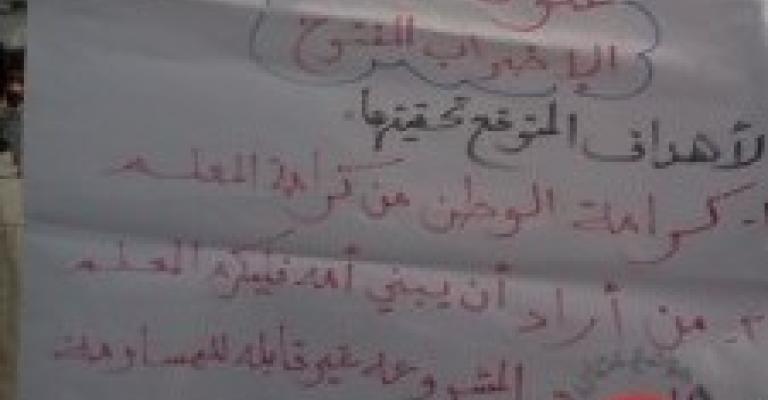 الإضراب المفتوح
الأهداف المتوقع تحقيقها.
١- كرامة الوطن من كرامة المعلم
٢- من أراد أن يبني أمه فليكرم المعلم
المشروعه غير قابله للمساومة